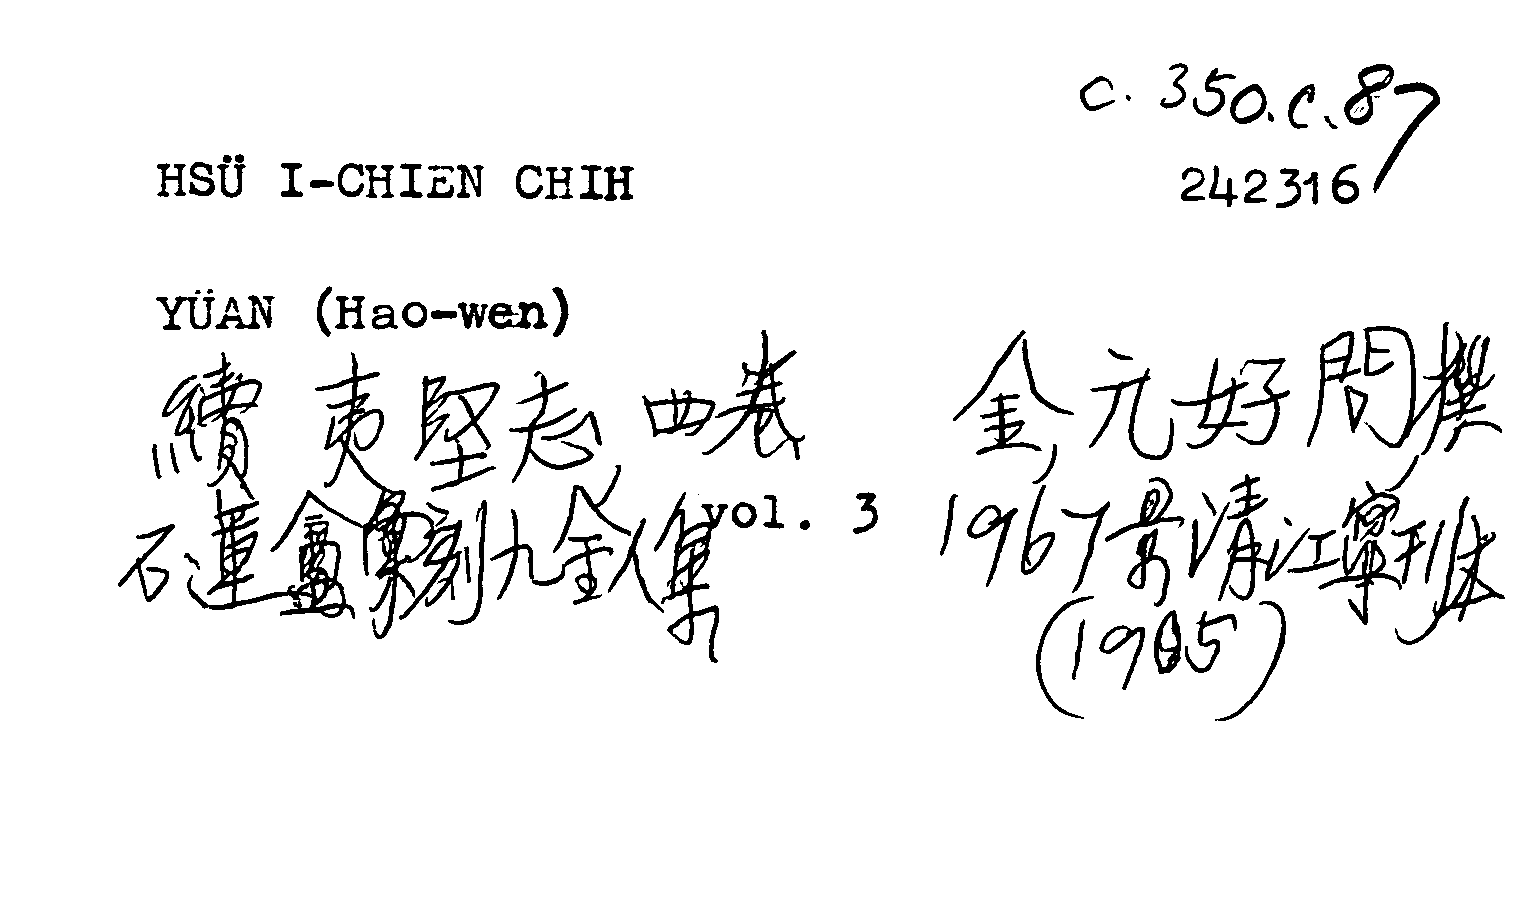 c. 350.c.87
HSÜ I-CHIEN CHIH
242316
YÜAN (Hao-wen)
續夷堅志 四卷 金,元好問撰
石蓮盦彙刻九金人集 vol. 3 1967景清江寧刊本
(1905)